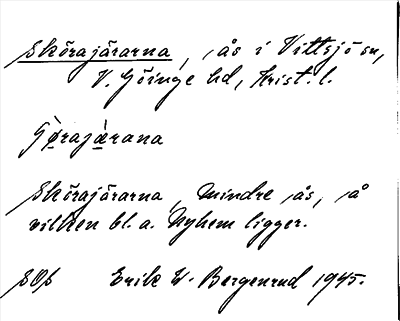 Skörajärarna, ås i Vittsjö sn,
V. Göinge hd, Krist. l.
Skörajärarna, mindre ås, å
vilken bl. a. Nyhem ligger.
SOÅ Erik W. Bergenrud 1945.